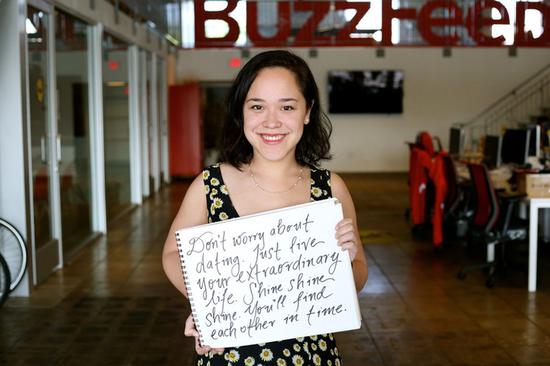 BuzzFeed
Don't worry about
dating. Just live
your extraordinary
life. Shine shine
shine. You'll find
each other in time.